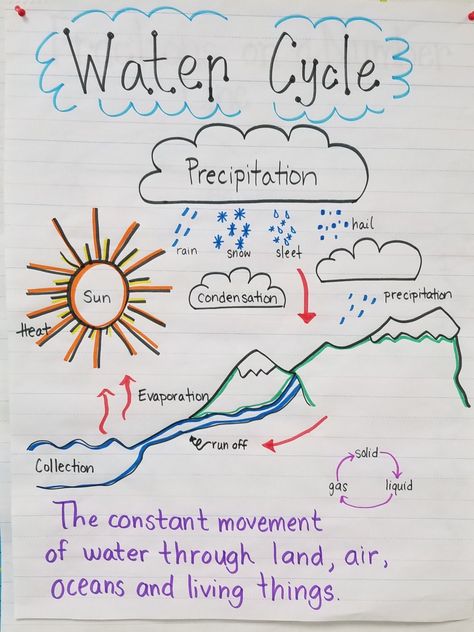 Water Cycle
Precipitation
rain
snow
sleet
hail
Sun
Heat
condensation
precipitation
Evaporation
run off
Collection
solid
gas
liquid
The constant movement
of water through land, air,
oceans and living things.